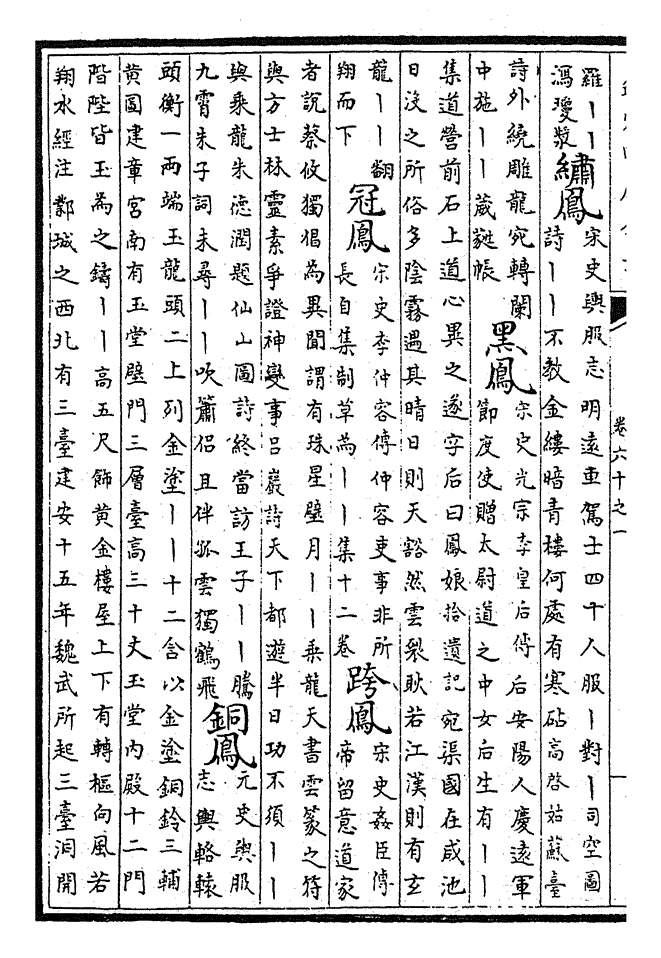 卷六十之一
一
羅丨丨
馮瓊漿
繡鳳
宋史輿服志明遠車駕士四十人服丨對丨司空圖
詩丨丨不教金縷暗青樓何處有寒砧高啓姑蘇臺
詩外繞雕龍宛轉闌
中施丨丨葳蕤帳
黑鳳
宋史光宗李皇后傳后安陽人慶遠軍
節度使贈太尉道之中女后生有丨丨
集道營前石上道心異之遂字后曰鳳娘拾遺記宛渠國在咸池
日沒之所俗多陰霧遇其晴日則天豁然雲裂耿若江漢則有玄
龍丨丨翻
翔而下
冠鳳
宋史李仲容傳仲容吏事非所
長自集制草為丨丨集十二卷
跨鳳
宋史姦臣傳
帝留意道家
者說蔡攸獨倡為異聞謂有珠星璧月丨丨乘龍天書雲篆之符
與方士林靈素爭證神變事呂巖詩天下都遊半日功不須丨丨
與乘龍朱德潤題仙山圖詩終當訪王子丨丨騰
九霄朱子詞未尋丨丨吹簫侶且伴孤雲獨鶴飛
銅鳳
元史輿服
志輿輅轅
頭衡一兩端玉龍頭二上列金塗丨丨十二含以金塗銅鈴三輔
黃圖建章宮南有玉堂璧門三層臺高三十丈玉堂內殿十二門
階陛皆玉為之鑄丨丨高五尺飾黃金樓屋上下有轉樞向風若
翔水經注鄴城之西北有三臺建安十五年魏武所起三臺洞開